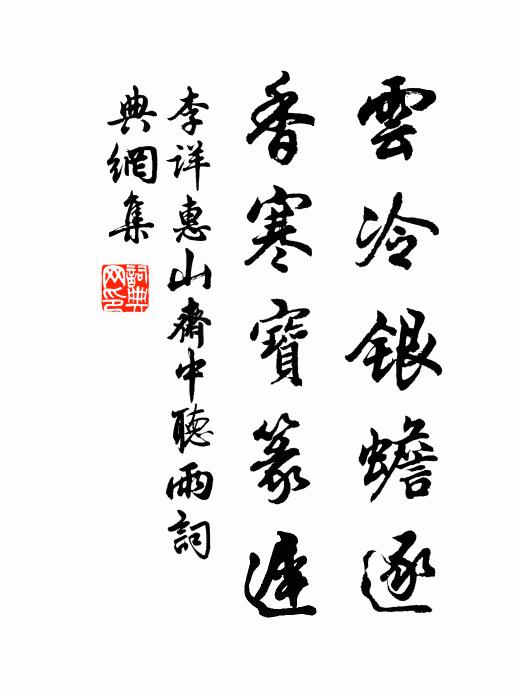 雲冷銀蟾逐
香寒寶篆遲
李詳惠山齋中聽雨詞
典網集
詞典網印